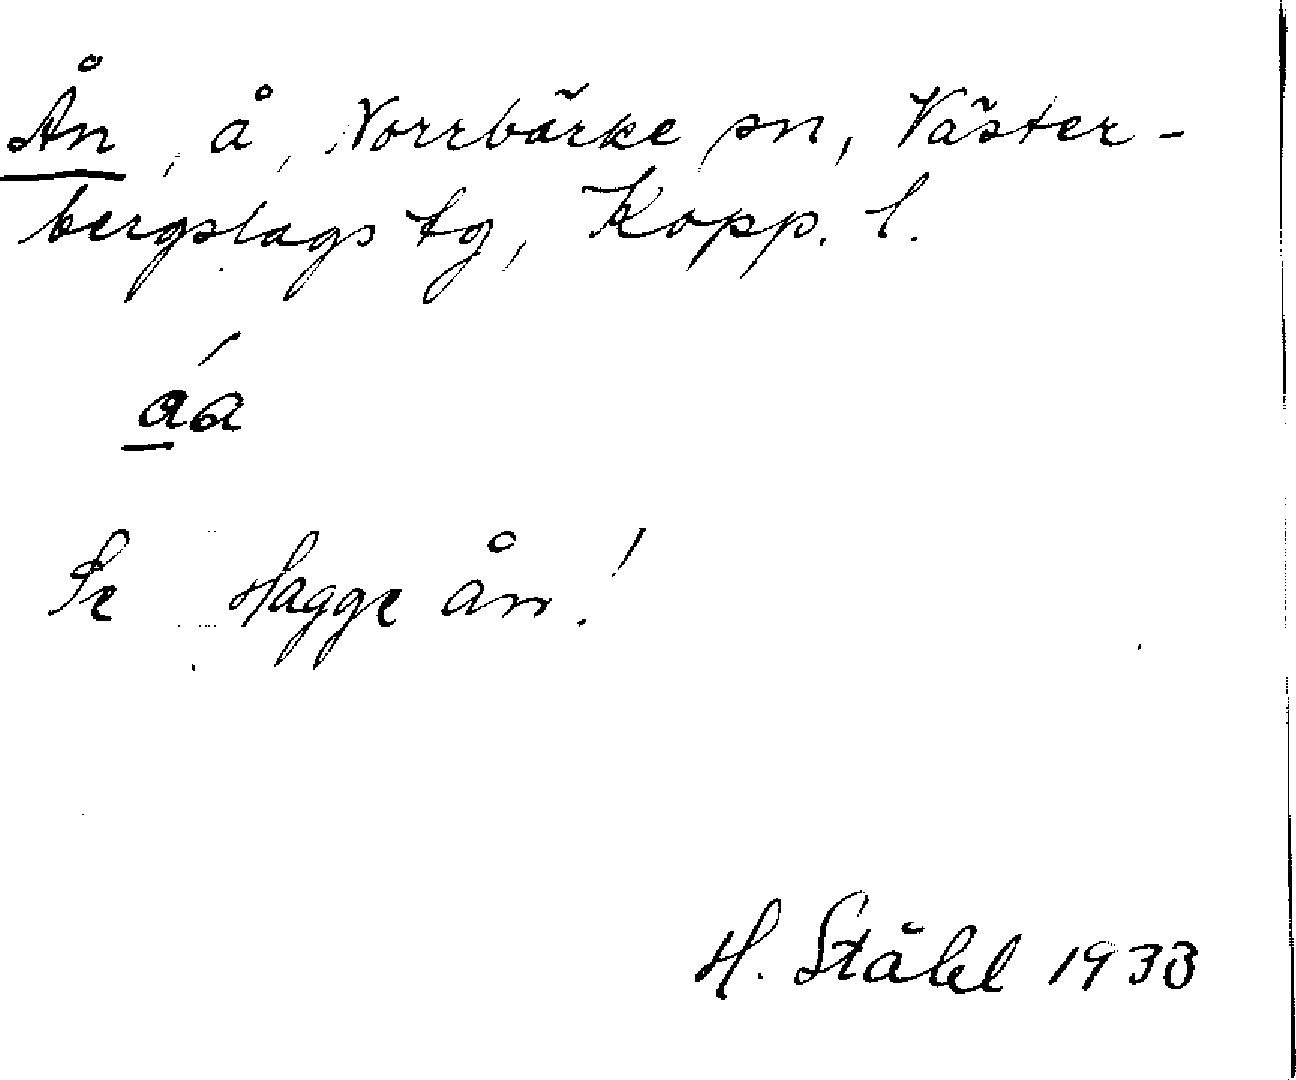 Ån, å, Norrbärke sn, Väster-
bergslags tg, Kopp. l.
a´a
Se Hagge ån!
H. Ståhl 1933